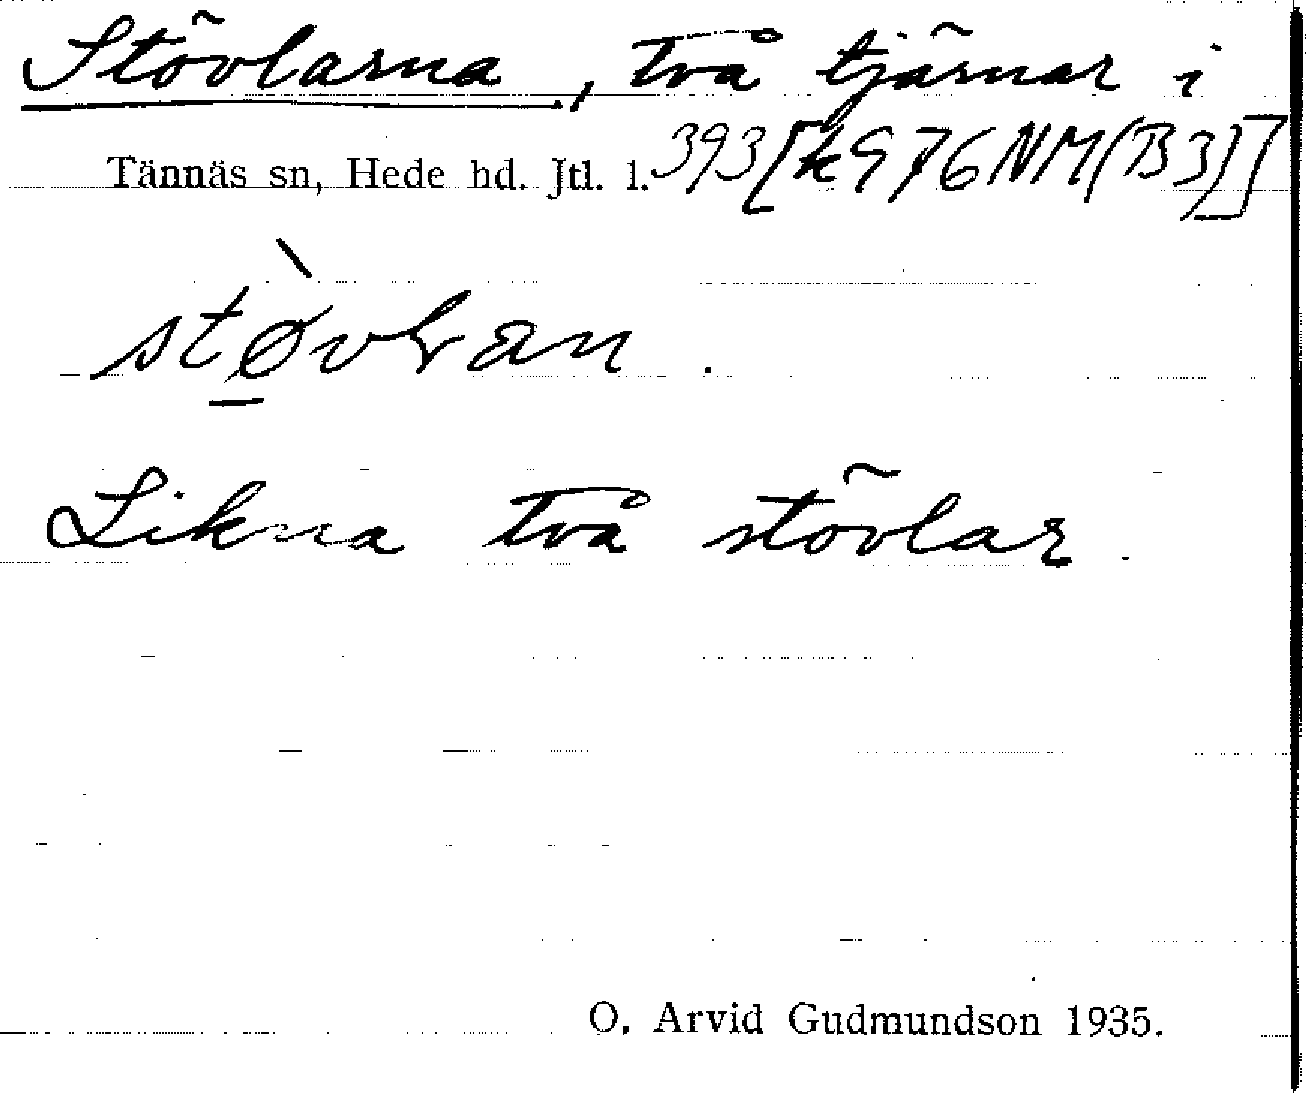 Stövlarna, två tjärnar i
Tännäs sn, Hede hd. Jtl. l. 393 [k 976 NM (B3)]
stø̀vḷran.
Likna två stövlar.
O. Arvid Gudmundson 1935.